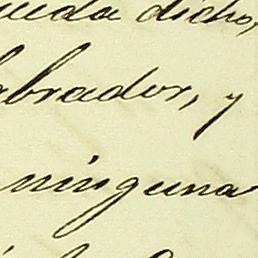 ueda dicho,
abrador, y
ninguna